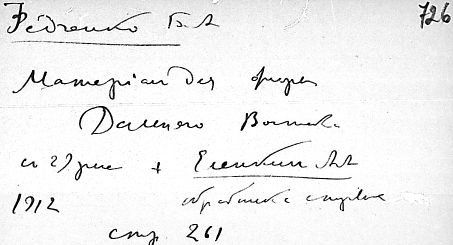 Федченко Б.А 726
Материал для флоры
Дальнего Востока
с 29 рис + Еленкин АА
1912 обработка
стр 261